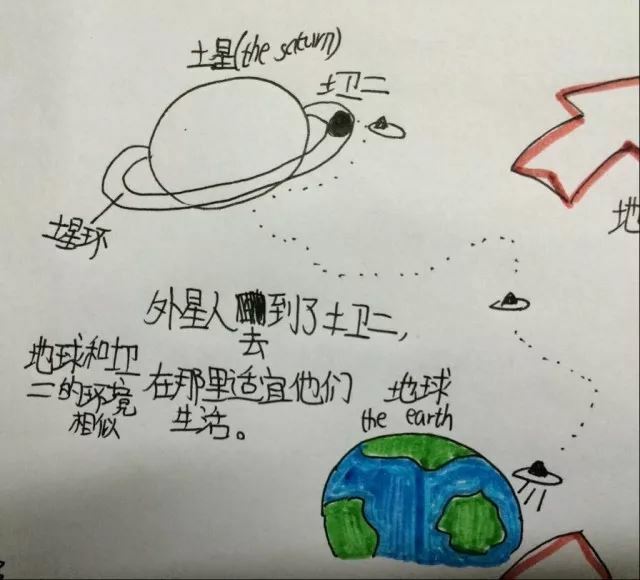 土星(the saturn)
土卫二
土星环
外星人到了土卫二,
去
地球和土卫
二的环境
相似
在那里适宜他们
生活。
地球
the earth
地